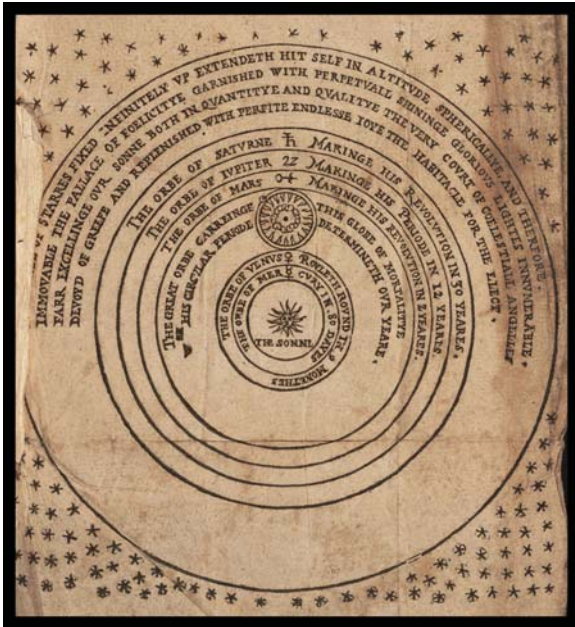 STARRES FIXED INFINITELY VP EXTENDETH HIT SELF IN ALTITVDE SPHERICALLYE, AND THERFORE
IMMOVABLE THE PALLACE OF FOELICITYE GARNISHED WITH PERPETVALL SHININGE GLORIOVS LIGHTES INNVMERABLE.
FARR EXCELLINGE OVR SONNE BOTH IN QVANTITYE AND QVALITYE THE VERY COVRT OF COELESTIALL ANGELLES
DEVOYD OF GREEFE AND REPLENISHED WITH PERFITE ENDLESSE IOYE THE HABITACLE FOR THE ELECT.
THE ORBE OF SATVRNE ♄ MAKINGE HIS REVOLVTION IN 30 YEARES,
THE ORBE OF IVPITER ♃ MAKINGE HIS PERIODE IN 12 YEARES
THE ORBE OF MARS ♂ MAKINGE HIS REVOLVTION IN 2 YEARES.
THE GREAT ORBE CARREINGE THIS GLOBE OF MORTALITYE
HIS CIRCVLAR PERIODE DETERMINETH OVR YEARE.
THE ORBE OF VENVS ♀ ROVLETH ROVND IN 9 MONETHES
THE ORBE OF MERCVRY IN 80 DAYES
THE SONNE